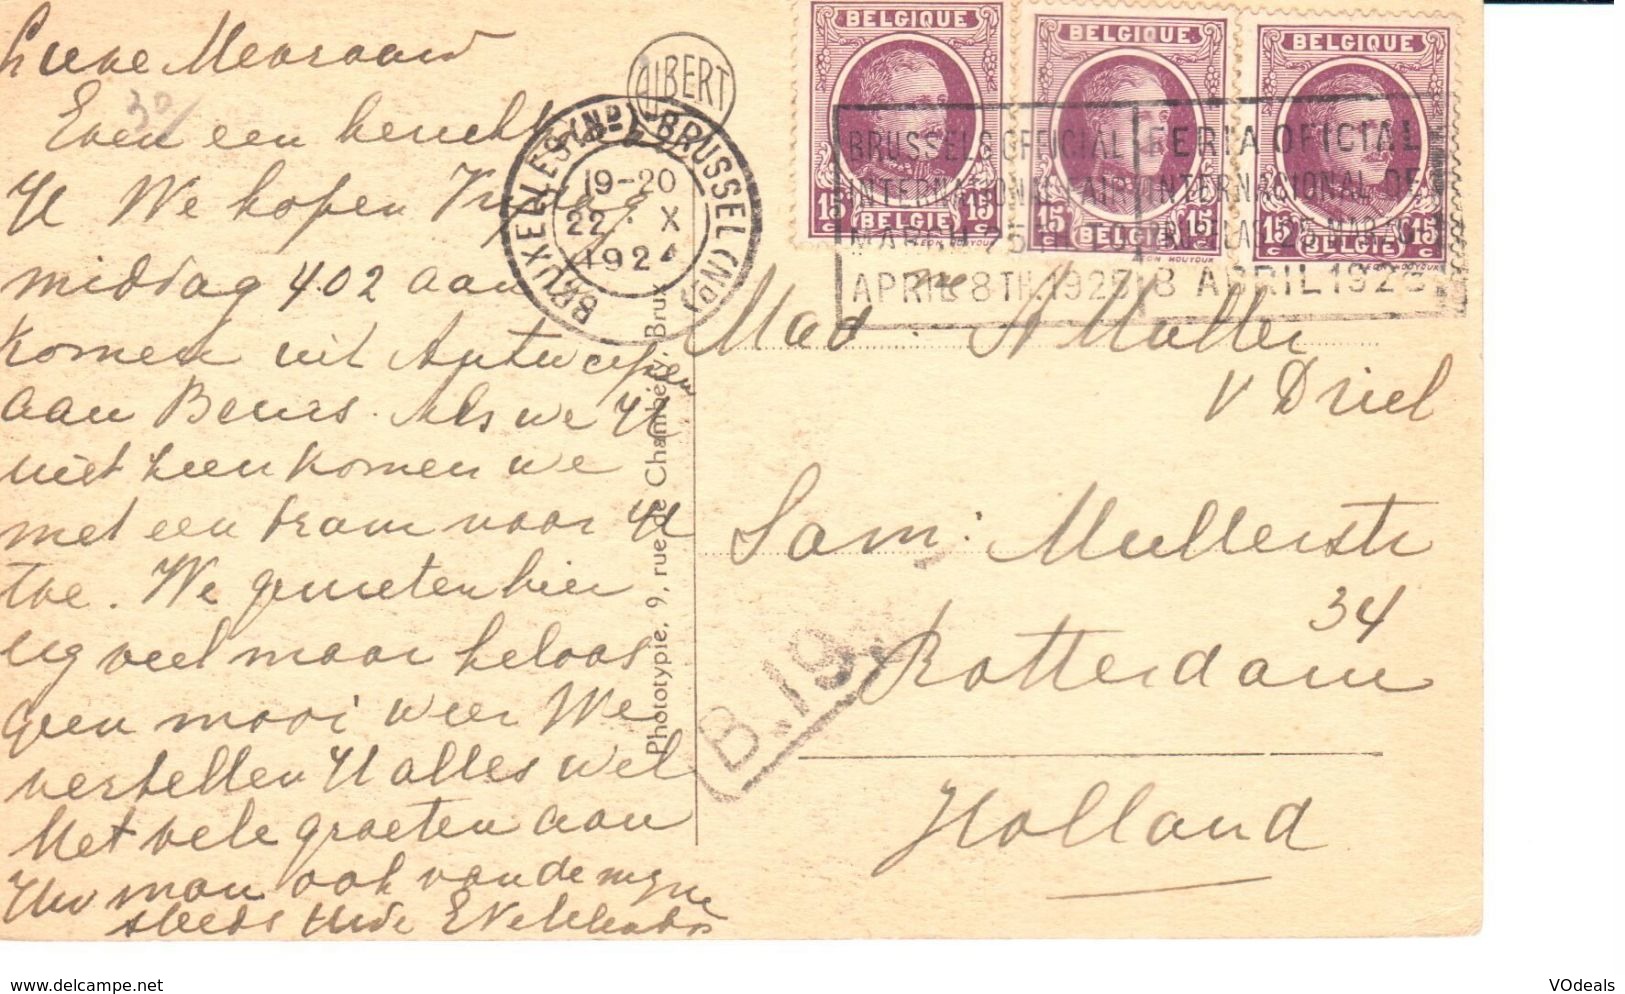 Lieve Mevrouw
Even een bericht
U We hopen Vrydag
middag 4.02 aan
komen uit Antwerpen
aan Beurs. Als we U
niet zien komen we
met een tram naar U
toe. We genieten hier
erg veel maar helaas
geen mooi weer We
vertellen U alles wel
Met vele groeten aan
Uw man ook van de myne
steeds Uwe
30/
ALBERT
BRUXELLES (ND) BRUSSEL (ND)
19-20
22 X
1924
Phototypie, 9, rue de Chambéry, Brux
BELGIQUE
15 c BELGIE 15 c
BELGIQUE
15 c 15 c
BELGIQUE
15 c BELGIE 15 c
BRUSSELS OFFICIAL
INTERNATIONAL FAIR
MARCH 25TH TO
APRIL 8TH.1925
FERIA OFICIAL
INTERNACIONAL DE
BRUSELAS 25 MARZO
8 ABRIL 1925
Mad: A Muller
v Driel
Sam: Mullerstr
34
Rotterdam
Holland
B.19
www.delcampe.net
VOdeals